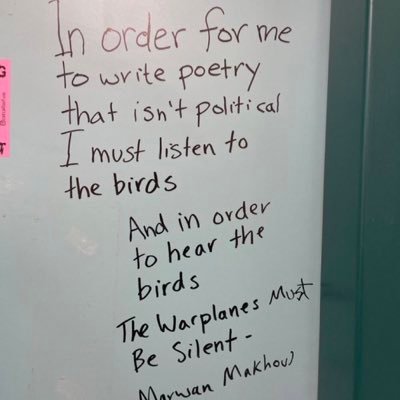 In order for me
to write poetry
that isn't political
I must listen to
the birds
And in order
to hear the
birds
The Warplanes Must
Be Silent -
Marwan Makhoul
G
T